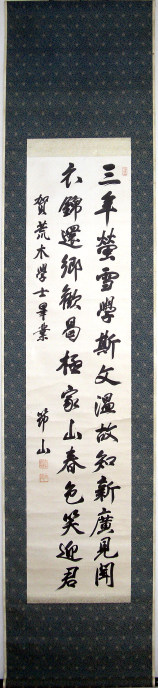 三年螢雪學斯文温故知新廣見聞
衣錦還鄉歡曷極家山春色笑迎君
賀荒木學士畢業
節山